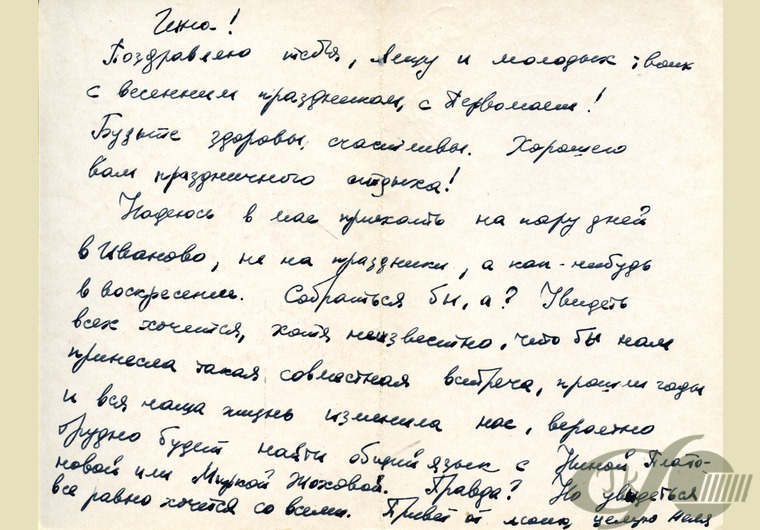 Инна!
Поздравляю тебя, Лешу и молодых твоих
с весенним праздником, с Первомаем!
Будьте здоровы, счастливы. Хорошего
вам праздничного отдыха!
Надеюсь в мае приехать на пару дней
в Иваново, не на праздники, а как-нибудь
в воскресение. Собраться бы, а? Увидеть
всех хочется, хотя неизвестно, что бы нам
принесла такая совместная встреча, прошли годы
и вся наша жизнь изменила нас, вероятно
трудно будет найти общий язык с Ниной Плато-
новой или Миркой Жоховой. Правда? Но увидеться
все равно хочется со всеми. Привет от мамы, целую Неля